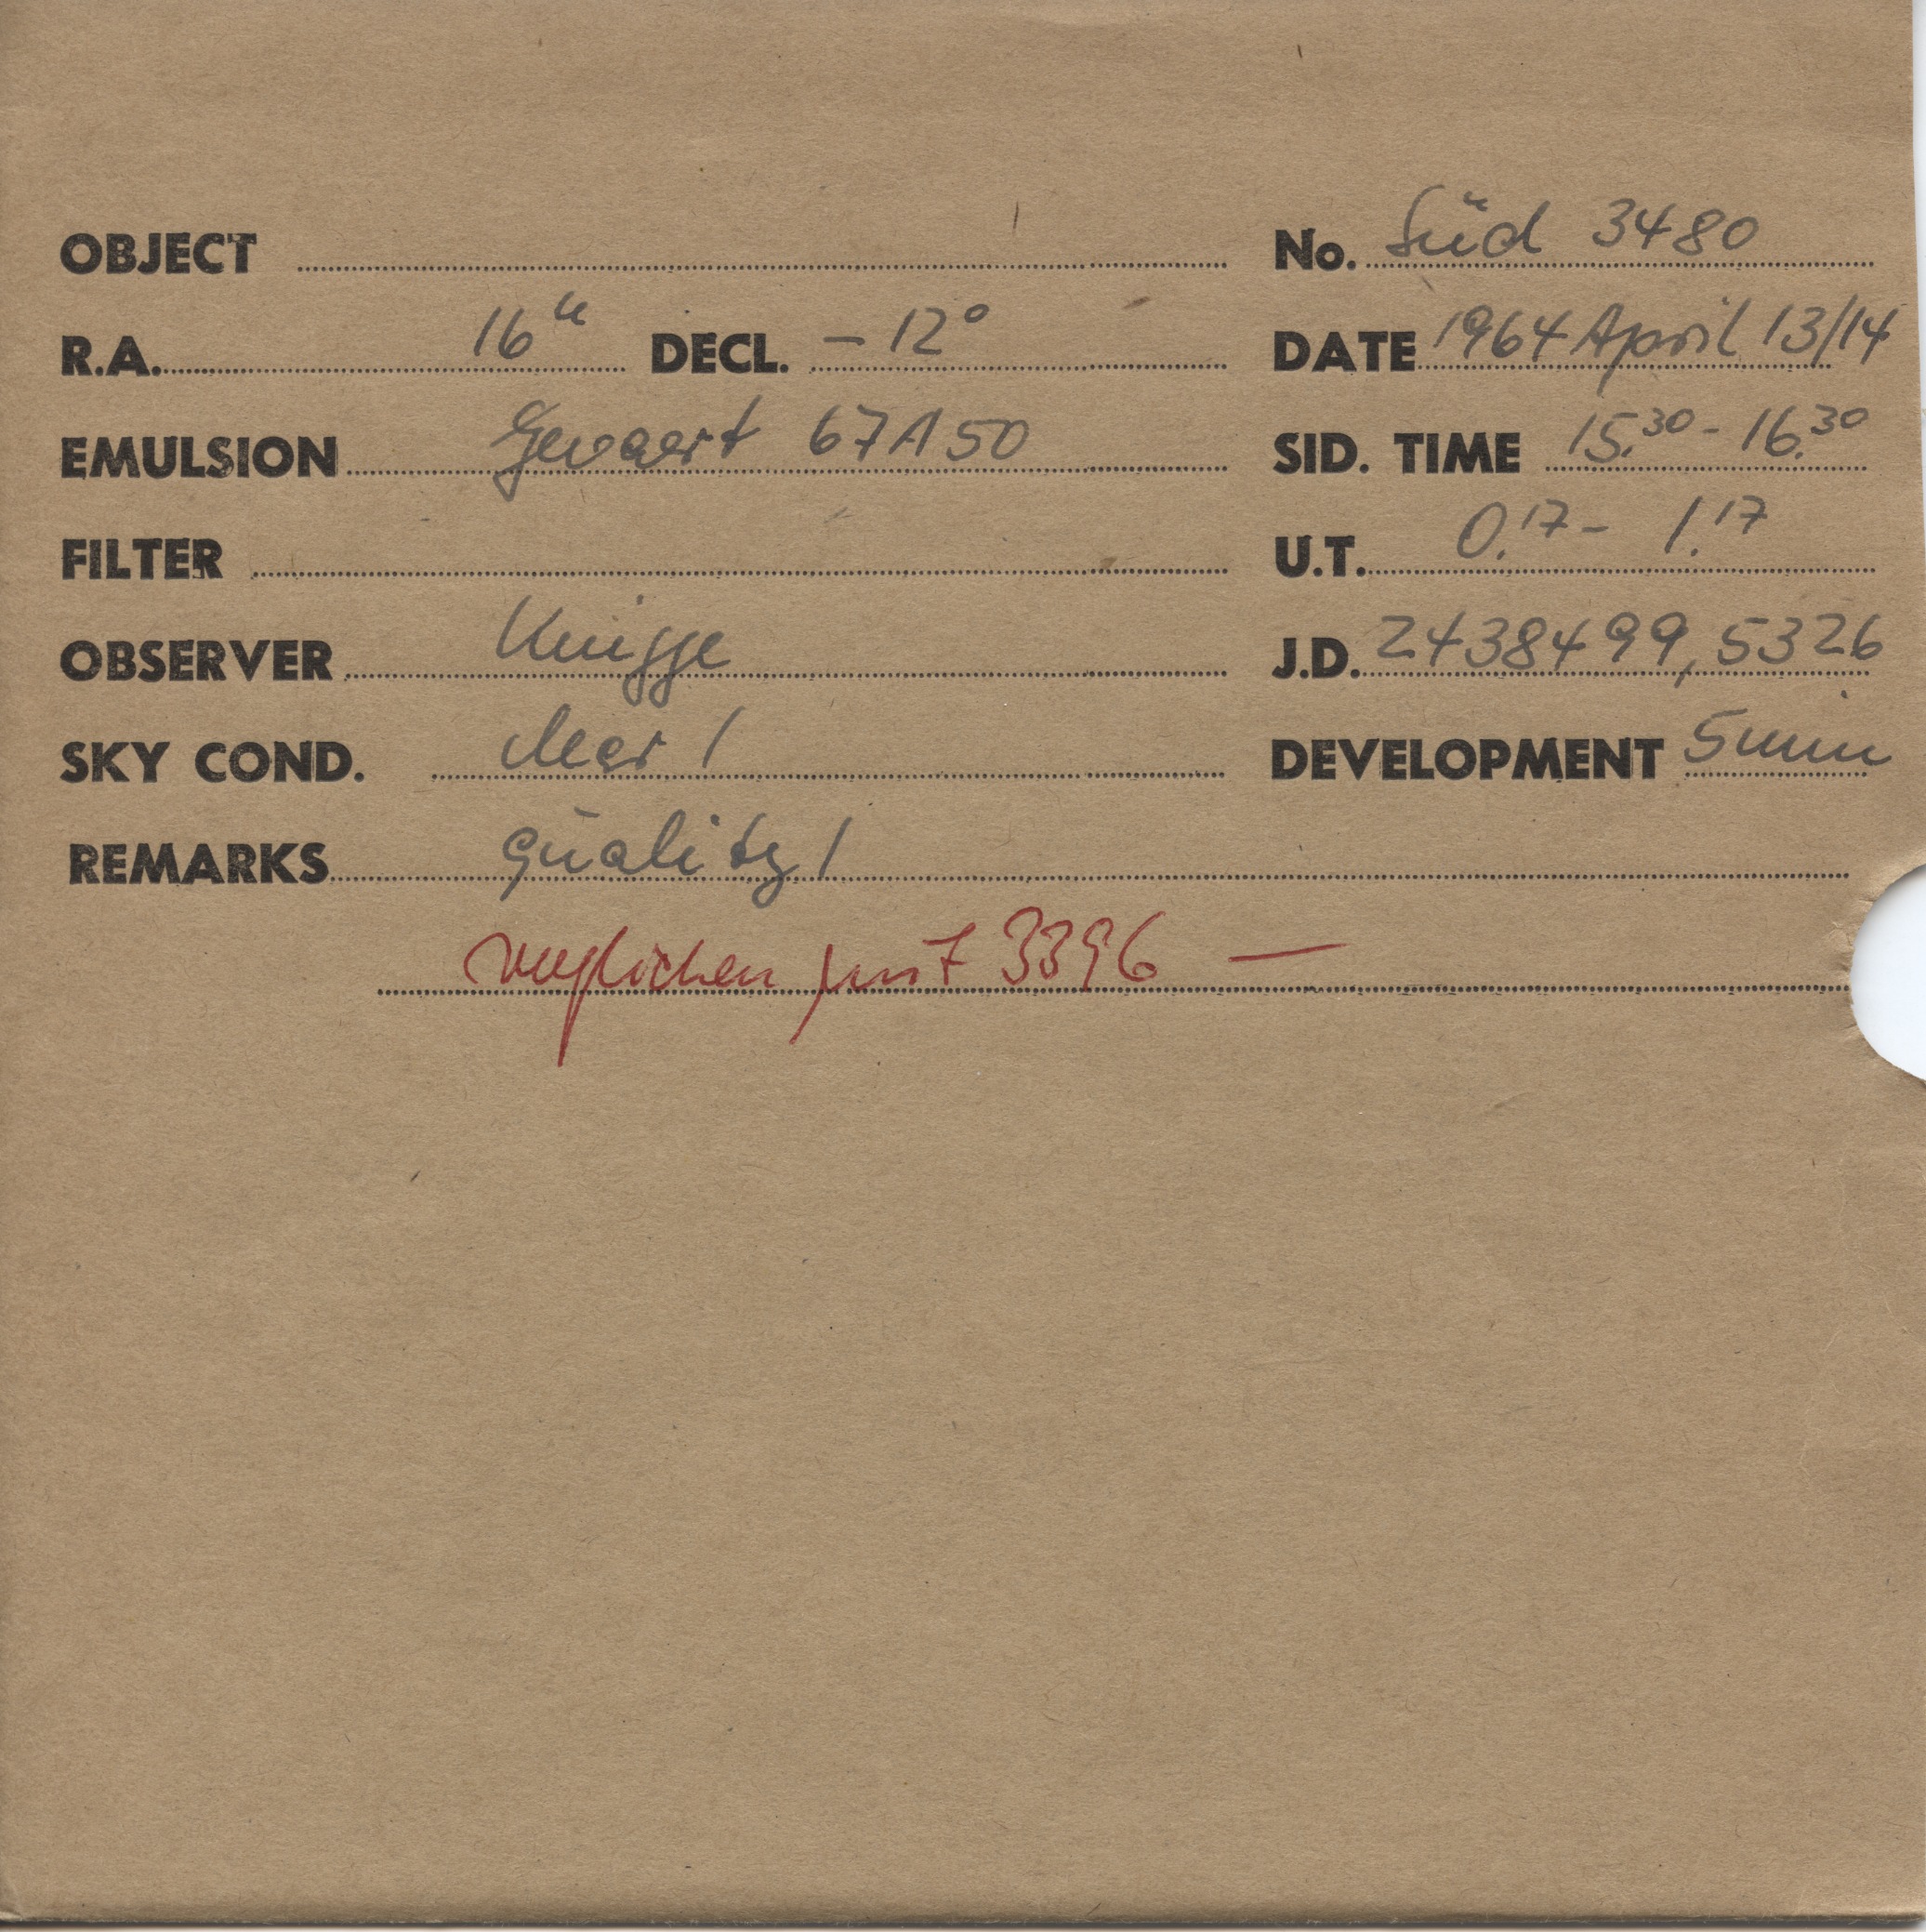 OBJECT No. Süd 3480
R.A. 16h DECL. - 12° DATE 1964 April 13/14
EMULSION Gevaert 67A50 SID. TIME 15.30 - 16.30
FILTER U.T. 0.17 - 1.17
OBSERVER Knigge J.D. 2438499,5326
SKY COND. clear 1 DEVELOPMENT 5 min
REMARKS quality 1
verglichen mit 3396 —